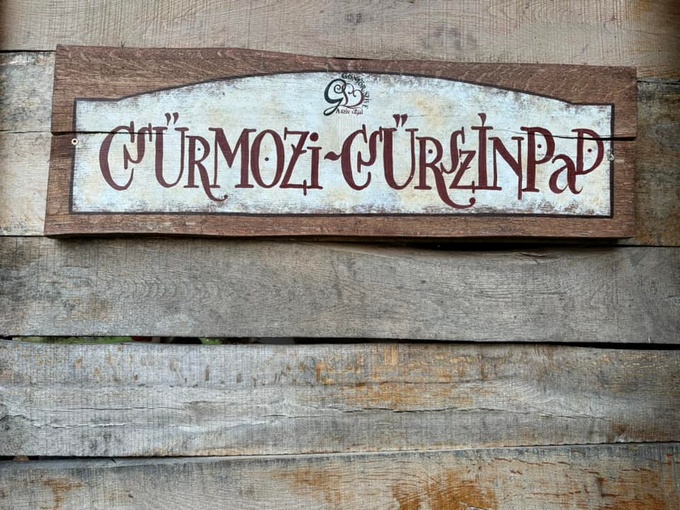 CSŰRMOZi~CSŰRSZÍNPaD